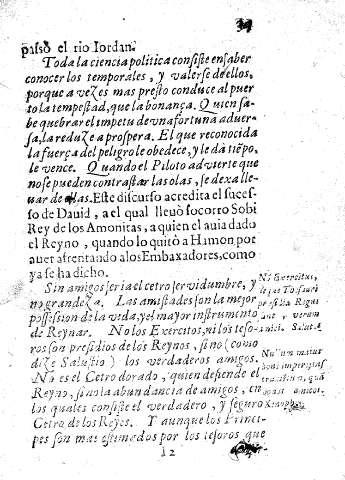 34
passò el rio Iordan.
Toda la ciencia politica consiste en saber
conocer los temporales, y valerse de ellos,
porque a vezes mas presto conduce al puer
to la tempestad, que la bonança. Quien sa-
be quebrar el impetu de vna fortuna aduer-
sa, la reduze a prospera. El que reconocida
la fuerça del peligro le obedece, y le da tiēpo,
le vence. Quando el Piloto aduierte que
no se pueden contrastar las olas, se dexa lle-
uar de ellas. Este discurso acredita el suces-
so de Dauid, a el qual lleuò socorro Sobi
Rey de los Amonitas, a quien el auia dado
el Reyno, quando lo quitò a Hanon por
auer afrentando a los Embaxadores, como
ya se ha dicho.
Sin amigos seria el cetro seruidumbre, y
no grandeza. Las amistades son la mejor
possession de la vida, y el mayor instrumento
de Reynar. No los Exercitos, ni los teso-
ros son presidios de los Reynos, sino (como
dize Salustio) los verdaderos amigos.
No es el Cetro dorado, quien defiende el
Reyno, sino la abundancia de amigos, en
los quales consiste el verdadero, y seguro
Cetro de los Reyes. Y aunque los Princi-
pes son mas estimados por los tesoros que
No Exercitus,
Salust.
12